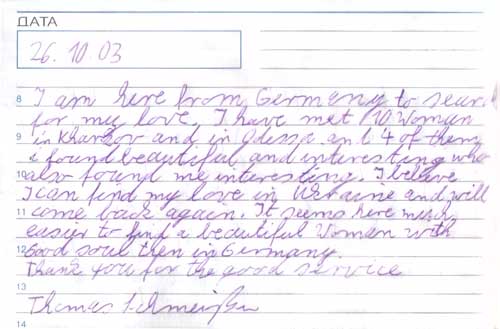 ДАТА
26.10.03
8 I am here from Germany to sear
for my love. I have met 10 Woman
9 in Kharkov and in Odessa and 4 of them
I found beautiful and interesting who
10 also found me interesting. I believe
I can find my love in Ukraine and will
11 come back again. It seems here much
easier to find a beautiful Women with
12 Good soul then in Germany.
Thank you for the good service
13
Thomas
14